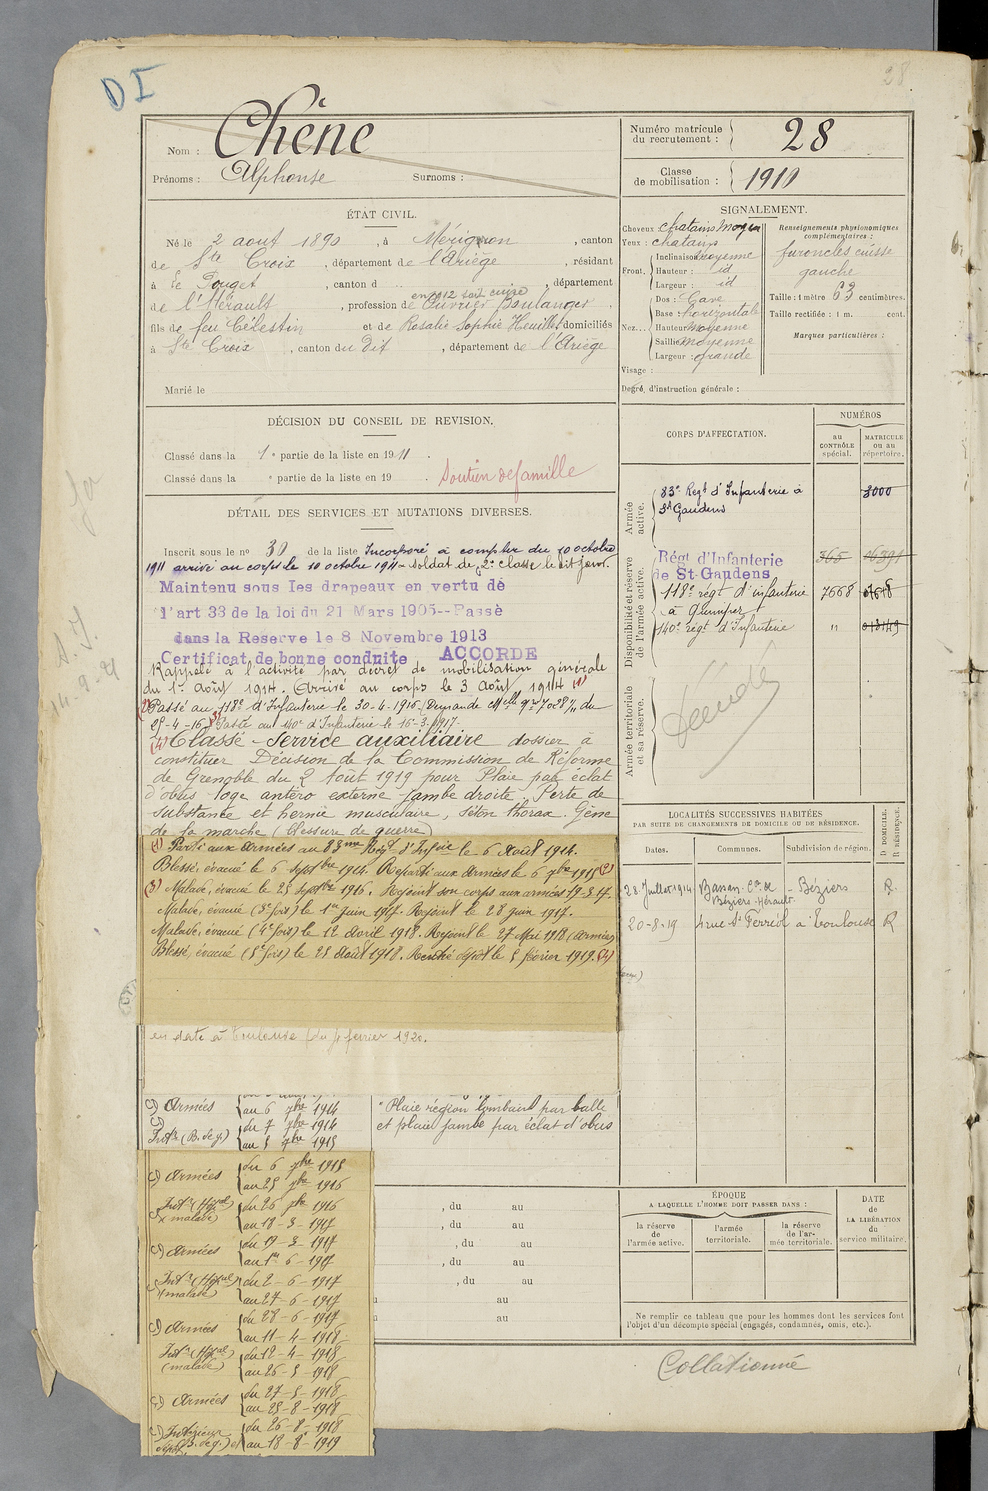 28
D I
Nom : Chêne
Prénoms : Alphonse Surnoms :
Numéro matricule du recrutement : 28
Classe de mobilisation : 1910
ÉTAT CIVIL.
Né le 2 aout 1890, à Mérigon, canton
de Ste Croix, département de l'Ariège, résidant
à Le Pouget, canton d , département
en 1912 soit cuire
de l'Hérault, profession de Ouvrier Boulanger.
fils de feu Célestin et de Rosalie Sophie Heuillet, domiciliés
à Ste Croix, canton du dit, département de l'Ariège
Marié le
SIGNALEMENT.
Cheveux chatains moyen
Yeux : chatains
Front, Inclinaison moyenne
Hauteur : id
Largeur : id
Nez... Dos : Cave
Base : horizontale
Hauteur moyenne
Saillie moyenne
Largeur : grande
Visage :
Renseignements physionomiques complémentaires :
furoncles cuisse
gauche
Taille : 1 mètre 63 centimètres.
Taille rectifiée : 1 m. cent.
Marques particulières :
Degré, d'instruction générale :
DÉCISION DU CONSEIL DE REVISION.
Classé dans la 1e partie de la liste en 1911.
Classé dans la e partie de la liste en 19 . Soutien de famille
DÉTAIL DES SERVICES ET MUTATIONS DIVERSES.
Inscrit sous le n° 30 de la liste Incorporé à compter du 10 octobre
1911 arrivé au corps le 10 octobre 1911 - Soldat de 2e classe le dit jour.
Maintenu sous les drapeaux en vertu de
l'art 33 de la loi du 21 Mars 1905--Passé
dans la Reserve le 8 Novembre 1913
Certificat de bonne conduite ACCORDE
Rappelé à l'activité par décret de mobilisation générale
du 1er Août 1914. Arrivé au corps le 3 Août 1914 (1)
(2) Passé au 118e d'Infanterie le 30-4-1916 (Demande Mlle n° 7028 1/11 du
25-4-16 (3) Passé au 140e d'Infanterie le 16-3-1917.
(4) Classé - Service auxiliaire dossier à
constituer Décision de la Commission de Réforme
de Grenoble du 2 Août 1919 pour Plaie par éclat
d'obus loge antéro externe jambe droite, Perte de
substance et hernie musculaire, séton thorax. Gêne
de la marche (blessure de guerre)
(1) Parti aux armées au 83me Régt d'Infrie le 6 Août 1914.
Blessé, évacué le 6 Septbre 1914. Reparti aux armées le 6 9bre 1915 (2)
(3) Malade, évacué le 25 Septbre 1916. Rejoint son corps aux armées 19-3-17.
Malade, évacué (3e fois) le 1er Juin 1917. Rejoint le 28 juin 1917.
Malade, évacué (4e fois) le 12 Avril 1918. Rejoint le 27 Mai 1918 (Armées)
Blessé, évacué (5e fois) le 25 Août 1918. Rentré dépôt le 5 février 1919. (4)
en date à Toulouse du 4 février 1920.
c) Armées au 6 7bre 1914
Intr (B. de g.) du 7 7bre 1914
au 5 9bre 1915
"Plaie région lombaire par balle
et plaie jambe par éclat d'obus
c) Armées du 6 9bre 1915
au 25 7bre 1916
Intr (Hôpal) (malade) du 26 7bre 1916
au 18-3-1917
c) Armées du 19-3-1917
au 1er 6-1917
Intr (Hôpal) (malade) du 2-6-1917
au 27-6-1917
c) Armées du 28-6-1917
au 11-4-1918
Intr (Hôpal) (malade) du 12-4-1918
au 26-5-1918
c) Armées du 27-5-1918
au 25-8-1918
c) Intérieur (B. de g.) du 26-8-1918
au 18-8-1919
, du au
, du au
, du au
au
au
CORPS D'AFFECTATION.
NUMÉROS
au CONTRÔLE spécial.
MATRICULE ou au répertoire.
Armée active.
83e Régt d'Infanterie à 3000
St Gaudens
Disponibilité et réserve de l'armée active.
Régt d'Infanterie 365 16391
de St-Gaudens
118e régt d'infanterie 7668
à Quimper
140e régt d'Infanterie " 013149
Armée territoriale et sa réserve.
LOCALITÉS SUCCESSIVES HABITÉES
PAR SUITE DE CHANGEMENTS DE DOMICILE OU DE RÉSIDENCE.
Dates. Communes. Subdivision de région. D DOMICILE. R RÉSIDENCE.
28 Juillet 1914 Bassan Con de - Béziers R.
Béziers-Hérault
20-8-19 4 rue St Ferréol à Toulouse R
ÉPOQUE
A LAQUELLE L'HOMME DOIT PASSER DANS :
la réserve de l'armée active.
l'armée territoriale.
la réserve de l'armée territoriale.
DATE de LA LIBÉRATION du service militaire.
Ne remplir ce tableau que pour les hommes dont les services font
l'objet d'un décompte spécial (engagés, condamnés, omis, etc.).
Collationné